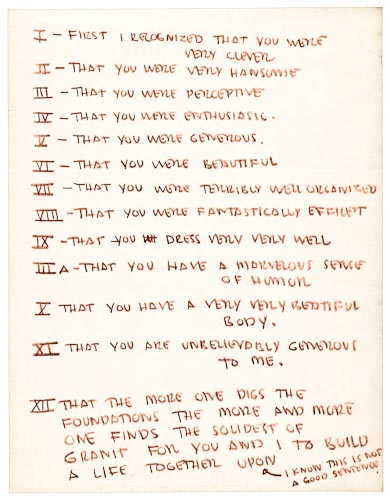 I – FIRST I RECOGNIZED THAT YOU WERE
VERY CLEVER
II – THAT YOU WERE VERY HANSOME
III – THAT YOU WERE PERCEPTIVE
IV – THAT YOU WERE ENTHUSIASIC.
V – THAT YOU WERE GENEROUS.
VI – THAT YOU WERE BEAUTIFUL
VII – THAT YOU WERE TERRIBLY WELL ORGANIZED
VIII – THAT YOU WERE FANTASTICALLY EFFICEPT
IX – THAT YOU DRESS VERY VERY WELL
IIII A – THAT YOU HAVE A MARVELOUS SENSE
OF HUMOR
X THAT YOU HAVE A VERY VERY BEATIFUL
BODY.
XI THAT YOU ARE UNBELIEVABLY GENEROUS
TO ME.
XII THAT THE MORE ONE DIGS THE
FOUNDATIONS THE MORE AND MORE
ONE FINDS THE SOLIDEST OF
GRANIT FOR YOU AND I TO BUILD
A LIFE TOGETHER UPON
I KNOW THIS IS NOT
A GOOD SENTENCE